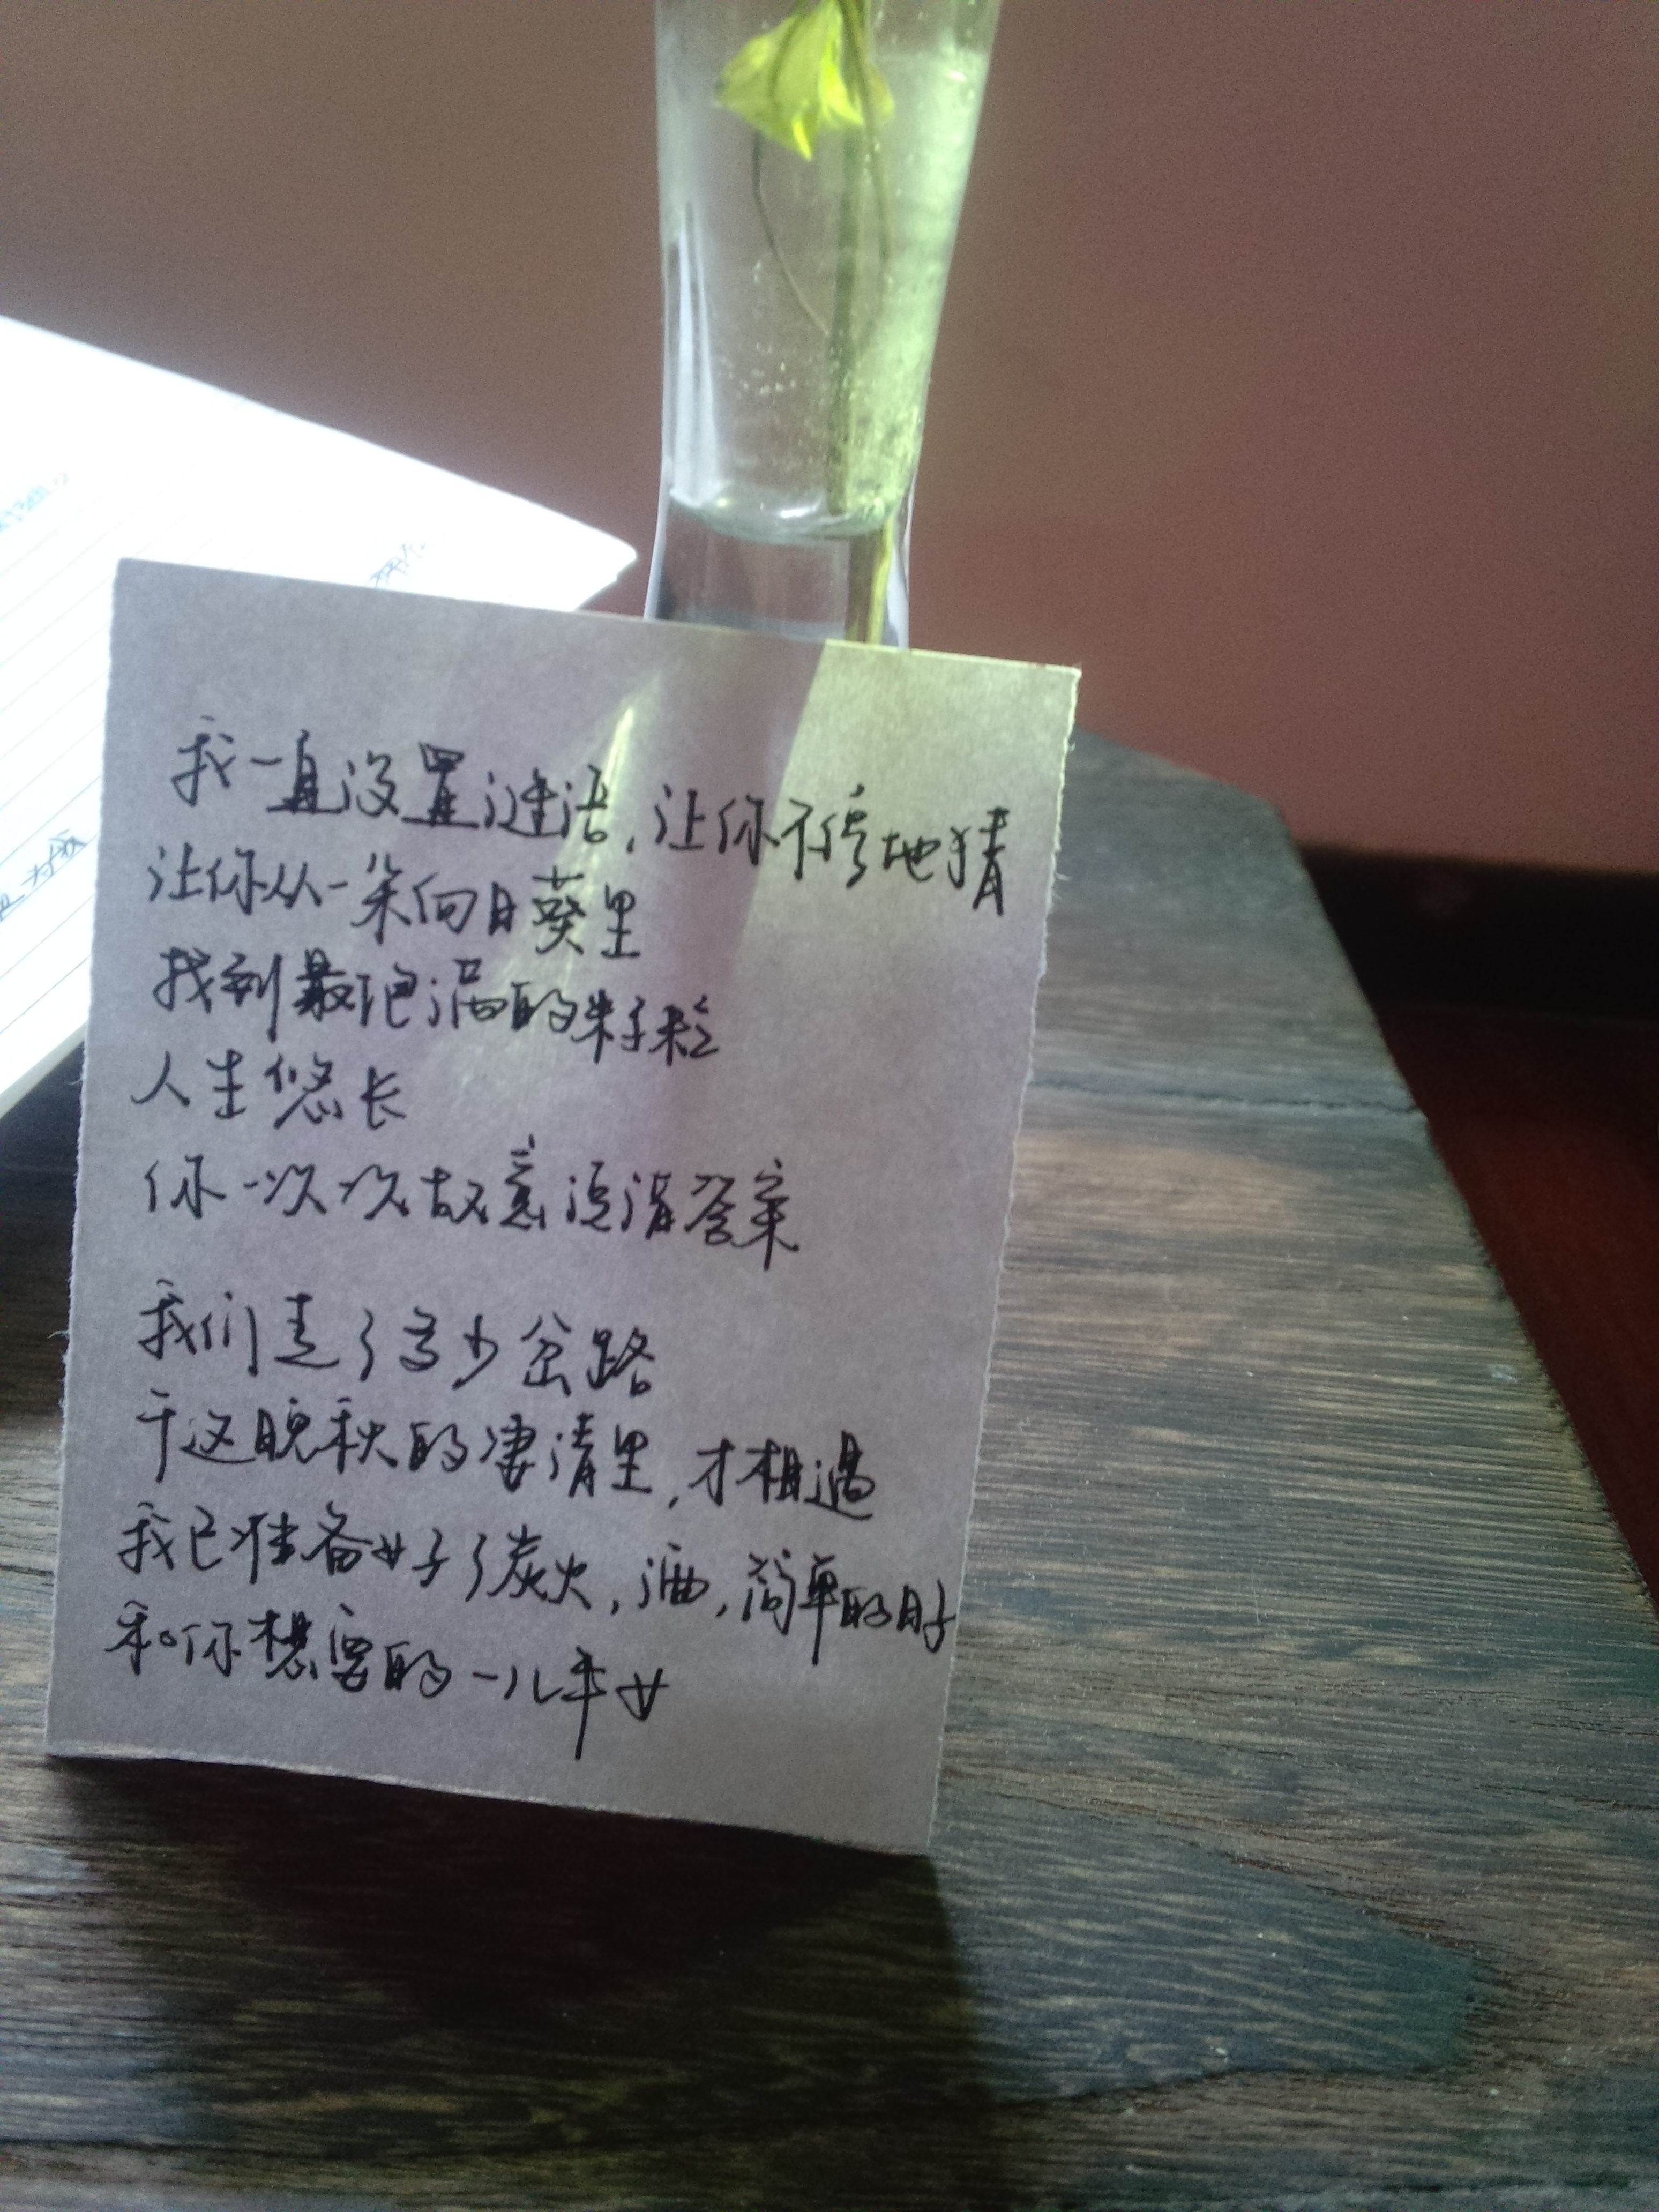 我一直设置谜语，让你不停地猜
让你从一朵向日葵里
找到最饱满的籽粒
人生悠长
你一次次故意混淆答案
我们走了多少岔路
于这晚秋的凄清里，才相遇
我已准备好了炭火，酒，简单的
和你想要的一儿半女